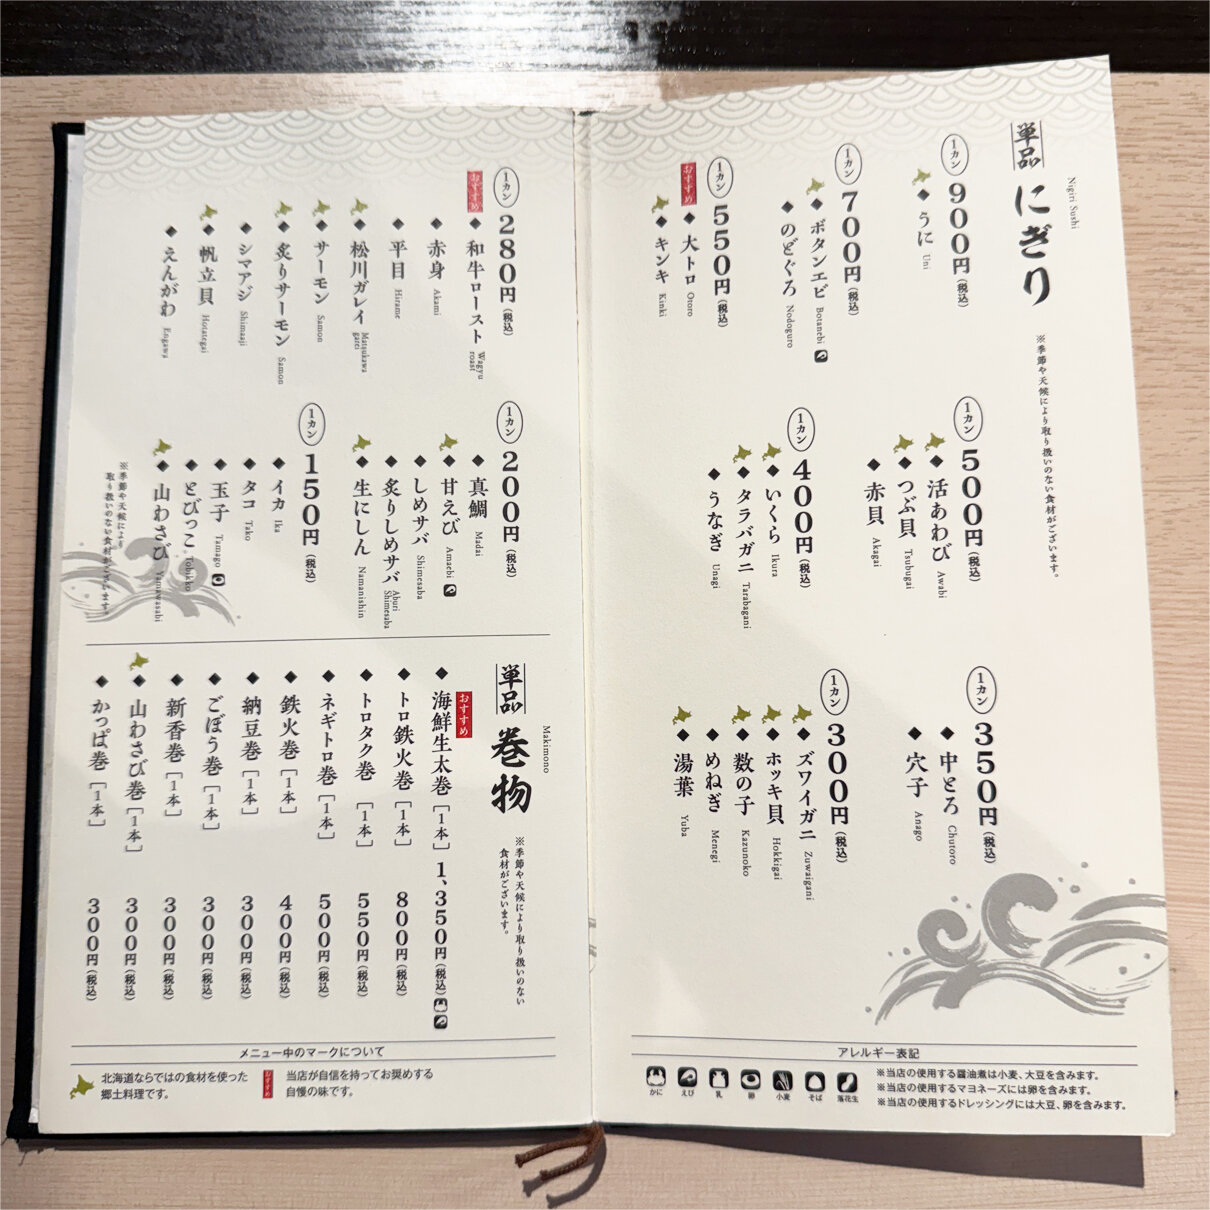 単品 にぎり
Nigiri Sushi
※季節や天候により取り扱いのない食材がございます。
1カン 900円(税込)
◆うに Uni
1カン 700円(税込)
◆ボタンエビ Botanebi
◆のどぐろ Nodoguro
1カン 550円(税込)
おすすめ
◆大トロ Otoro
◆キンキ Kinki
1カン 500円(税込)
◆活あわび Awabi
◆つぶ貝 Tsubugai
◆赤貝 Akagai
1カン 400円(税込)
◆いくら Ikura
◆タラバガニ Tarabagani
◆うなぎ Unagi
1カン 350円(税込)
◆中とろ Chutoro
◆穴子 Anago
1カン 300円(税込)
◆ズワイガニ Zuwaigani
◆ホッキ貝 Hokkigai
◆数の子 Kazunoko
◆めねぎ Menegi
◆湯葉 Yuba
アレルギー表記
かに
えび
乳
卵
小麦
そば
落花生
※当店の使用する醤油煮は小麦、大豆を含みます。
※当店の使用するマヨネーズには卵を含みます。
※当店の使用するドレッシングには大豆、卵を含みます。
1カン 280円(税込)
おすすめ
◆和牛ロースト Wagyu roast
◆赤身 Akami
◆平目 Hirame
◆松川ガレイ Matsukawa garei
◆サーモン Samon
◆炙りサーモン Samon
◆シマアジ Shimaaji
◆帆立貝 Hotategai
◆えんがわ Engawa
1カン 200円(税込)
◆真鯛 Madai
◆甘えび Amaebi
◆しめサバ Shimesaba
◆炙りしめサバ Aburi Shimesaba
◆生にしん Namanishin
1カン 150円(税込)
◆イカ Ika
◆タコ Tako
◆玉子 Tamago
◆とびっこ Tobikko
◆山わさび Yamawasabi
※季節や天候により
取り扱いのない食材がございます。
単品 巻物
Makimono
※季節や天候により取り扱いのない
食材がございます。
おすすめ
◆海鮮生太巻[1本] 1,350円(税込)
◆トロ鉄火巻[1本] 800円(税込)
◆トロタク巻[1本] 550円(税込)
◆ネギトロ巻[1本] 500円(税込)
◆鉄火巻[1本] 400円(税込)
◆納豆巻[1本] 300円(税込)
◆ごぼう巻[1本] 300円(税込)
◆新香巻[1本] 300円(税込)
◆山わさび巻[1本] 300円(税込)
◆かっぱ巻[1本] 300円(税込)
メニュー中のマークについて
北海道ならではの食材を使った
郷土料理です。
おすすめ
当店が自信を持ってお奨めする
自慢の味です。